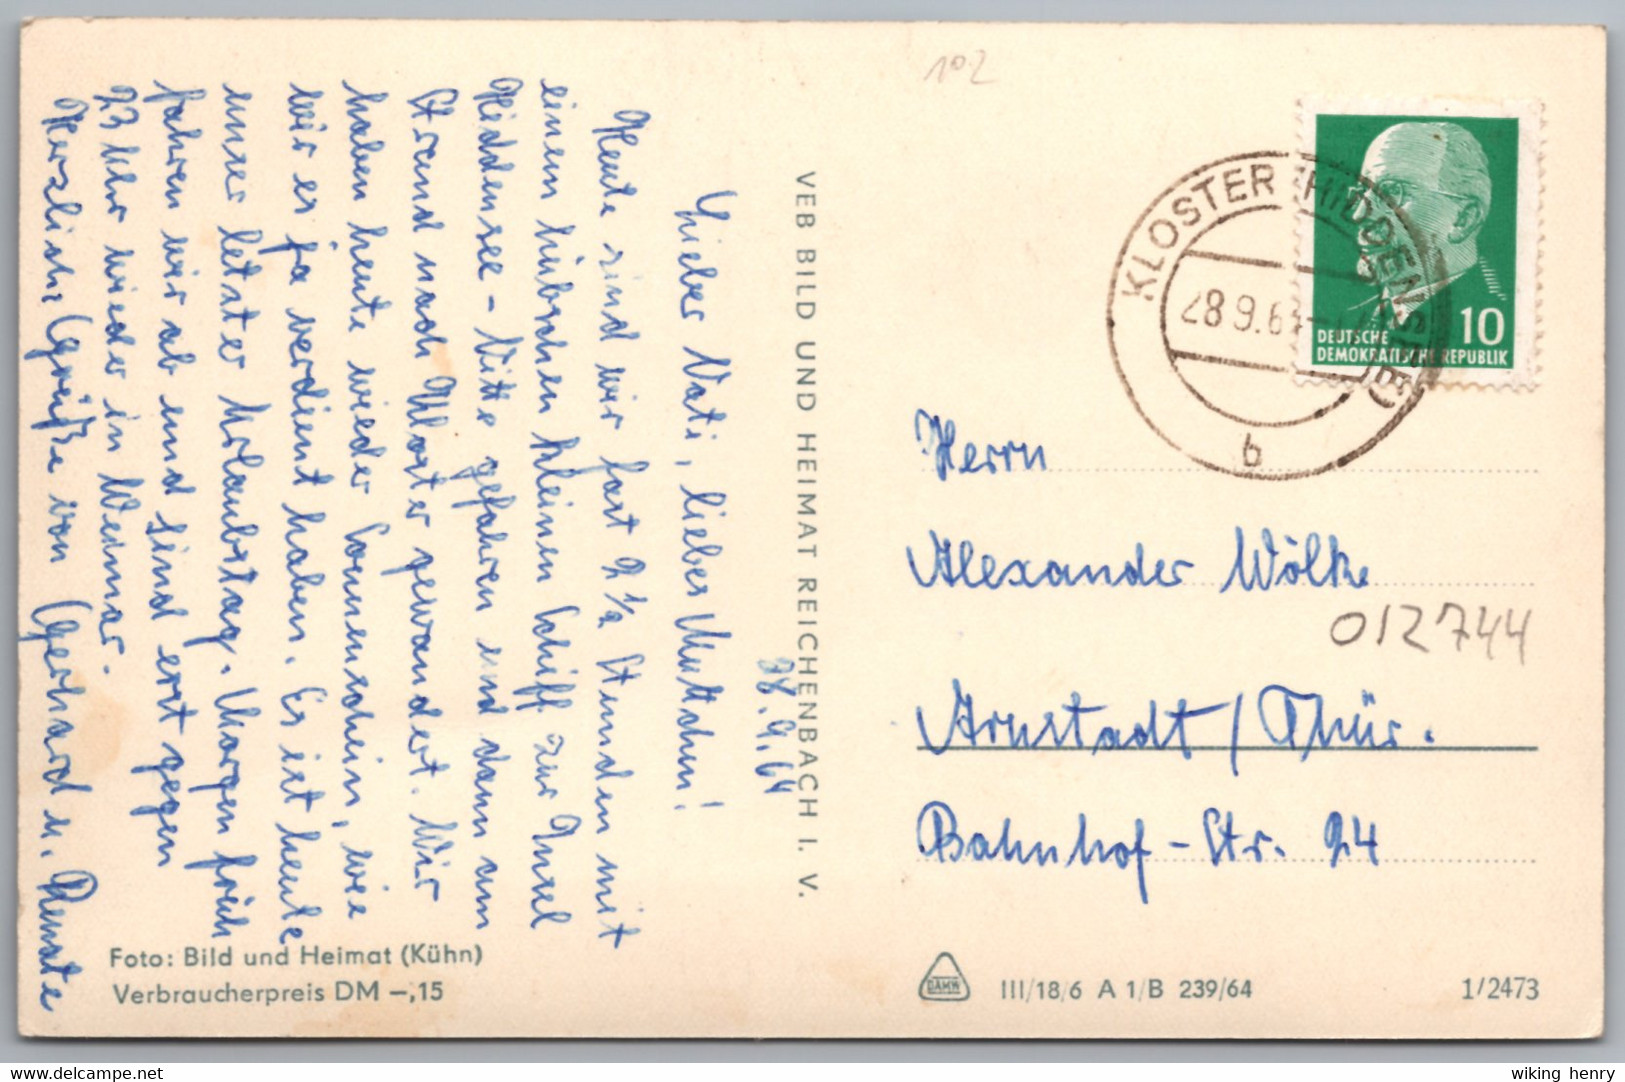 28.9.64
Lieber Vati, liebes Muttchen!
Heute sind wir fast 2 1/2 Stunden mit
einen hübschen kleinen Schiff zur Insel
Hiddensee - Vitte gefahren und dann am
Strand nach Kloster gewandert. Wir
haben heute wieder Sonnenschein, wie
wir es ja verdient haben. Es ist heute
unser letzter Urlaubstag. Morgen früh
fahren wir ab und sind erst gegen
23 Uhr wieder in Weimar.
Herzlich Grüße von Gerhard u. Renate
VEB BILD UND HEIMAT REICHENBACH I. V.
Foto: Bild und Heimat (Kühn)
Verbraucherpreis DM –,15
102
KLOSTER (HIDDENSEE)
28.9.64
b
10
DEUTSCHE
DEMOKRATISCHE REPUBLIK
Herrn
Alexander Wölke
012744
Arnstadt / Thür.
Bahnhof-Str. 24
DAMW
III/18/6 A 1/B 239/64
1/2473
wiking henry
www.delcampe.net